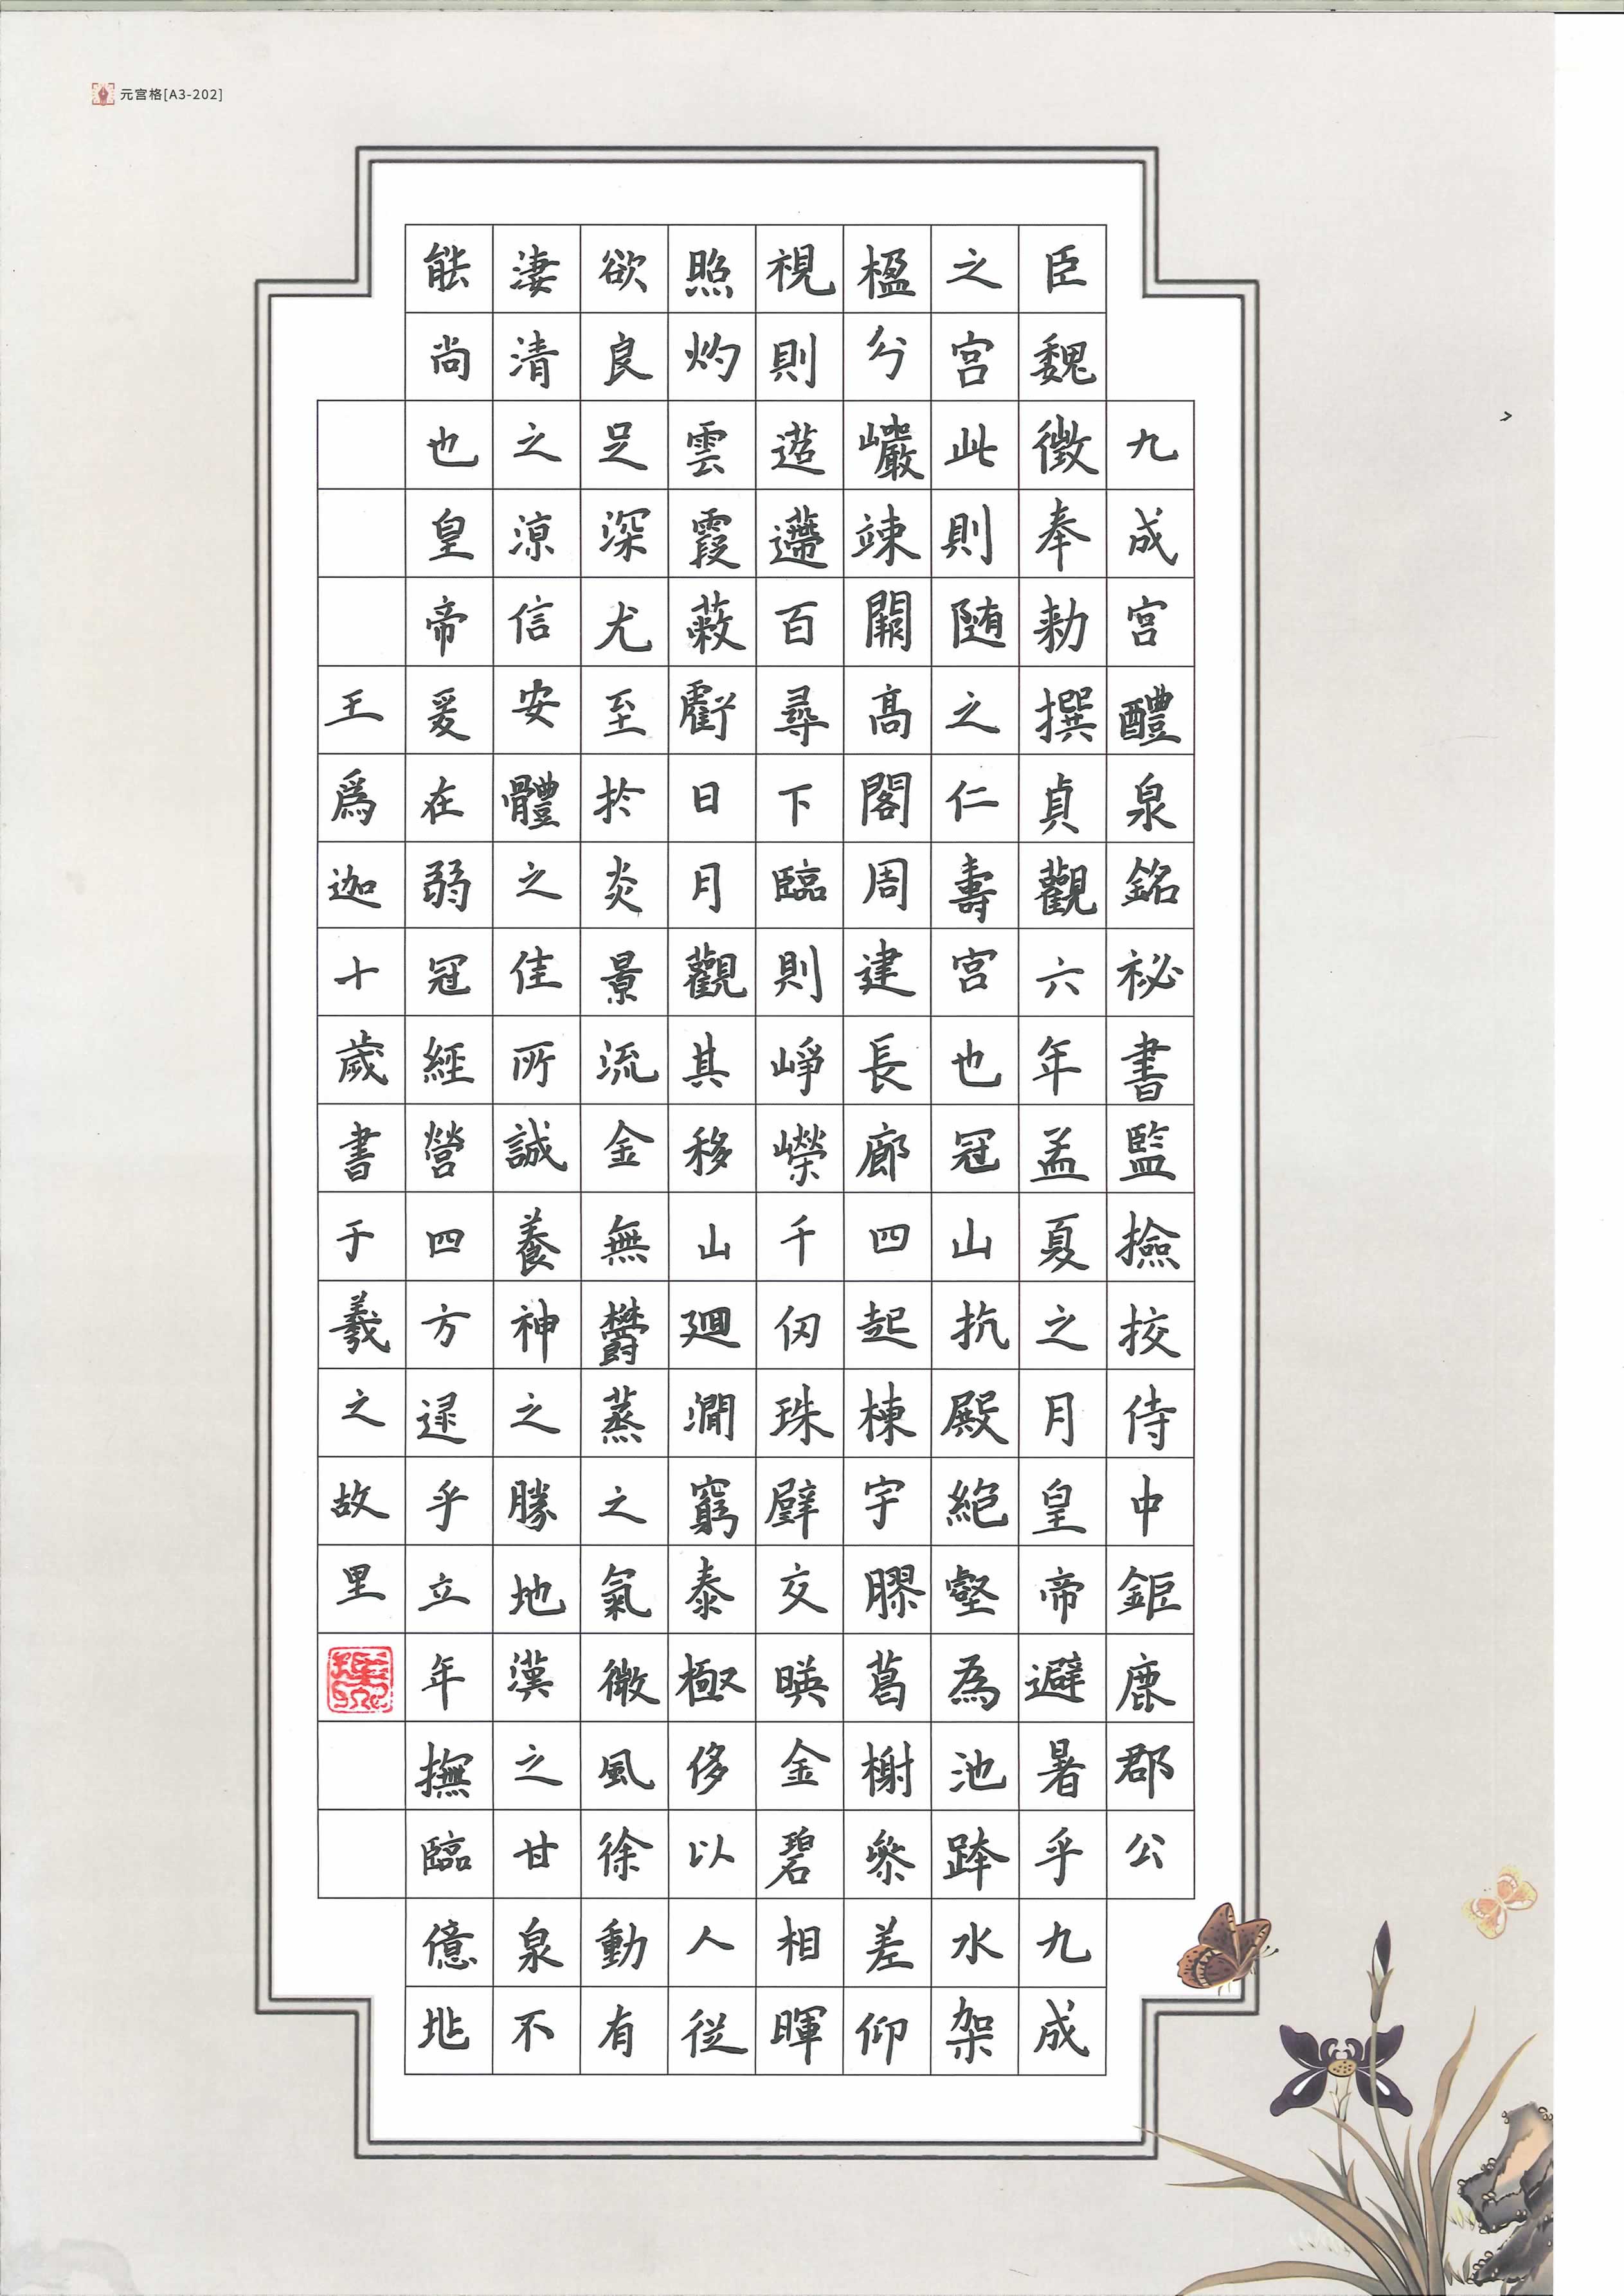 元宫格[A3-202]
九成宮醴泉銘祕書監撿挍侍中鉅鹿郡公
臣魏徵奉勅撰貞觀六年孟夏之月皇帝避暑乎九成
之宮此則随之仁壽宮也冠山抗殿絶壑為池跨水架
楹分巖竦闕高閣周建長廊四起棟宇膠葛榭參差仰
視則迢遰百尋下臨則崢嶸千仞珠璧交暎金碧相暉
照灼雲霞蔽虧日月觀其移山廻澗窮泰極侈以人從
欲良足深尤至扵炎景流金無欝蒸之氣微風徐動有
淒清之涼信安體之佳所誠養神之勝地漢之甘泉不
能尚也皇帝爰在弱冠經營四方逯乎立年撫臨億兆
王爲迦十歲書于羲之故里